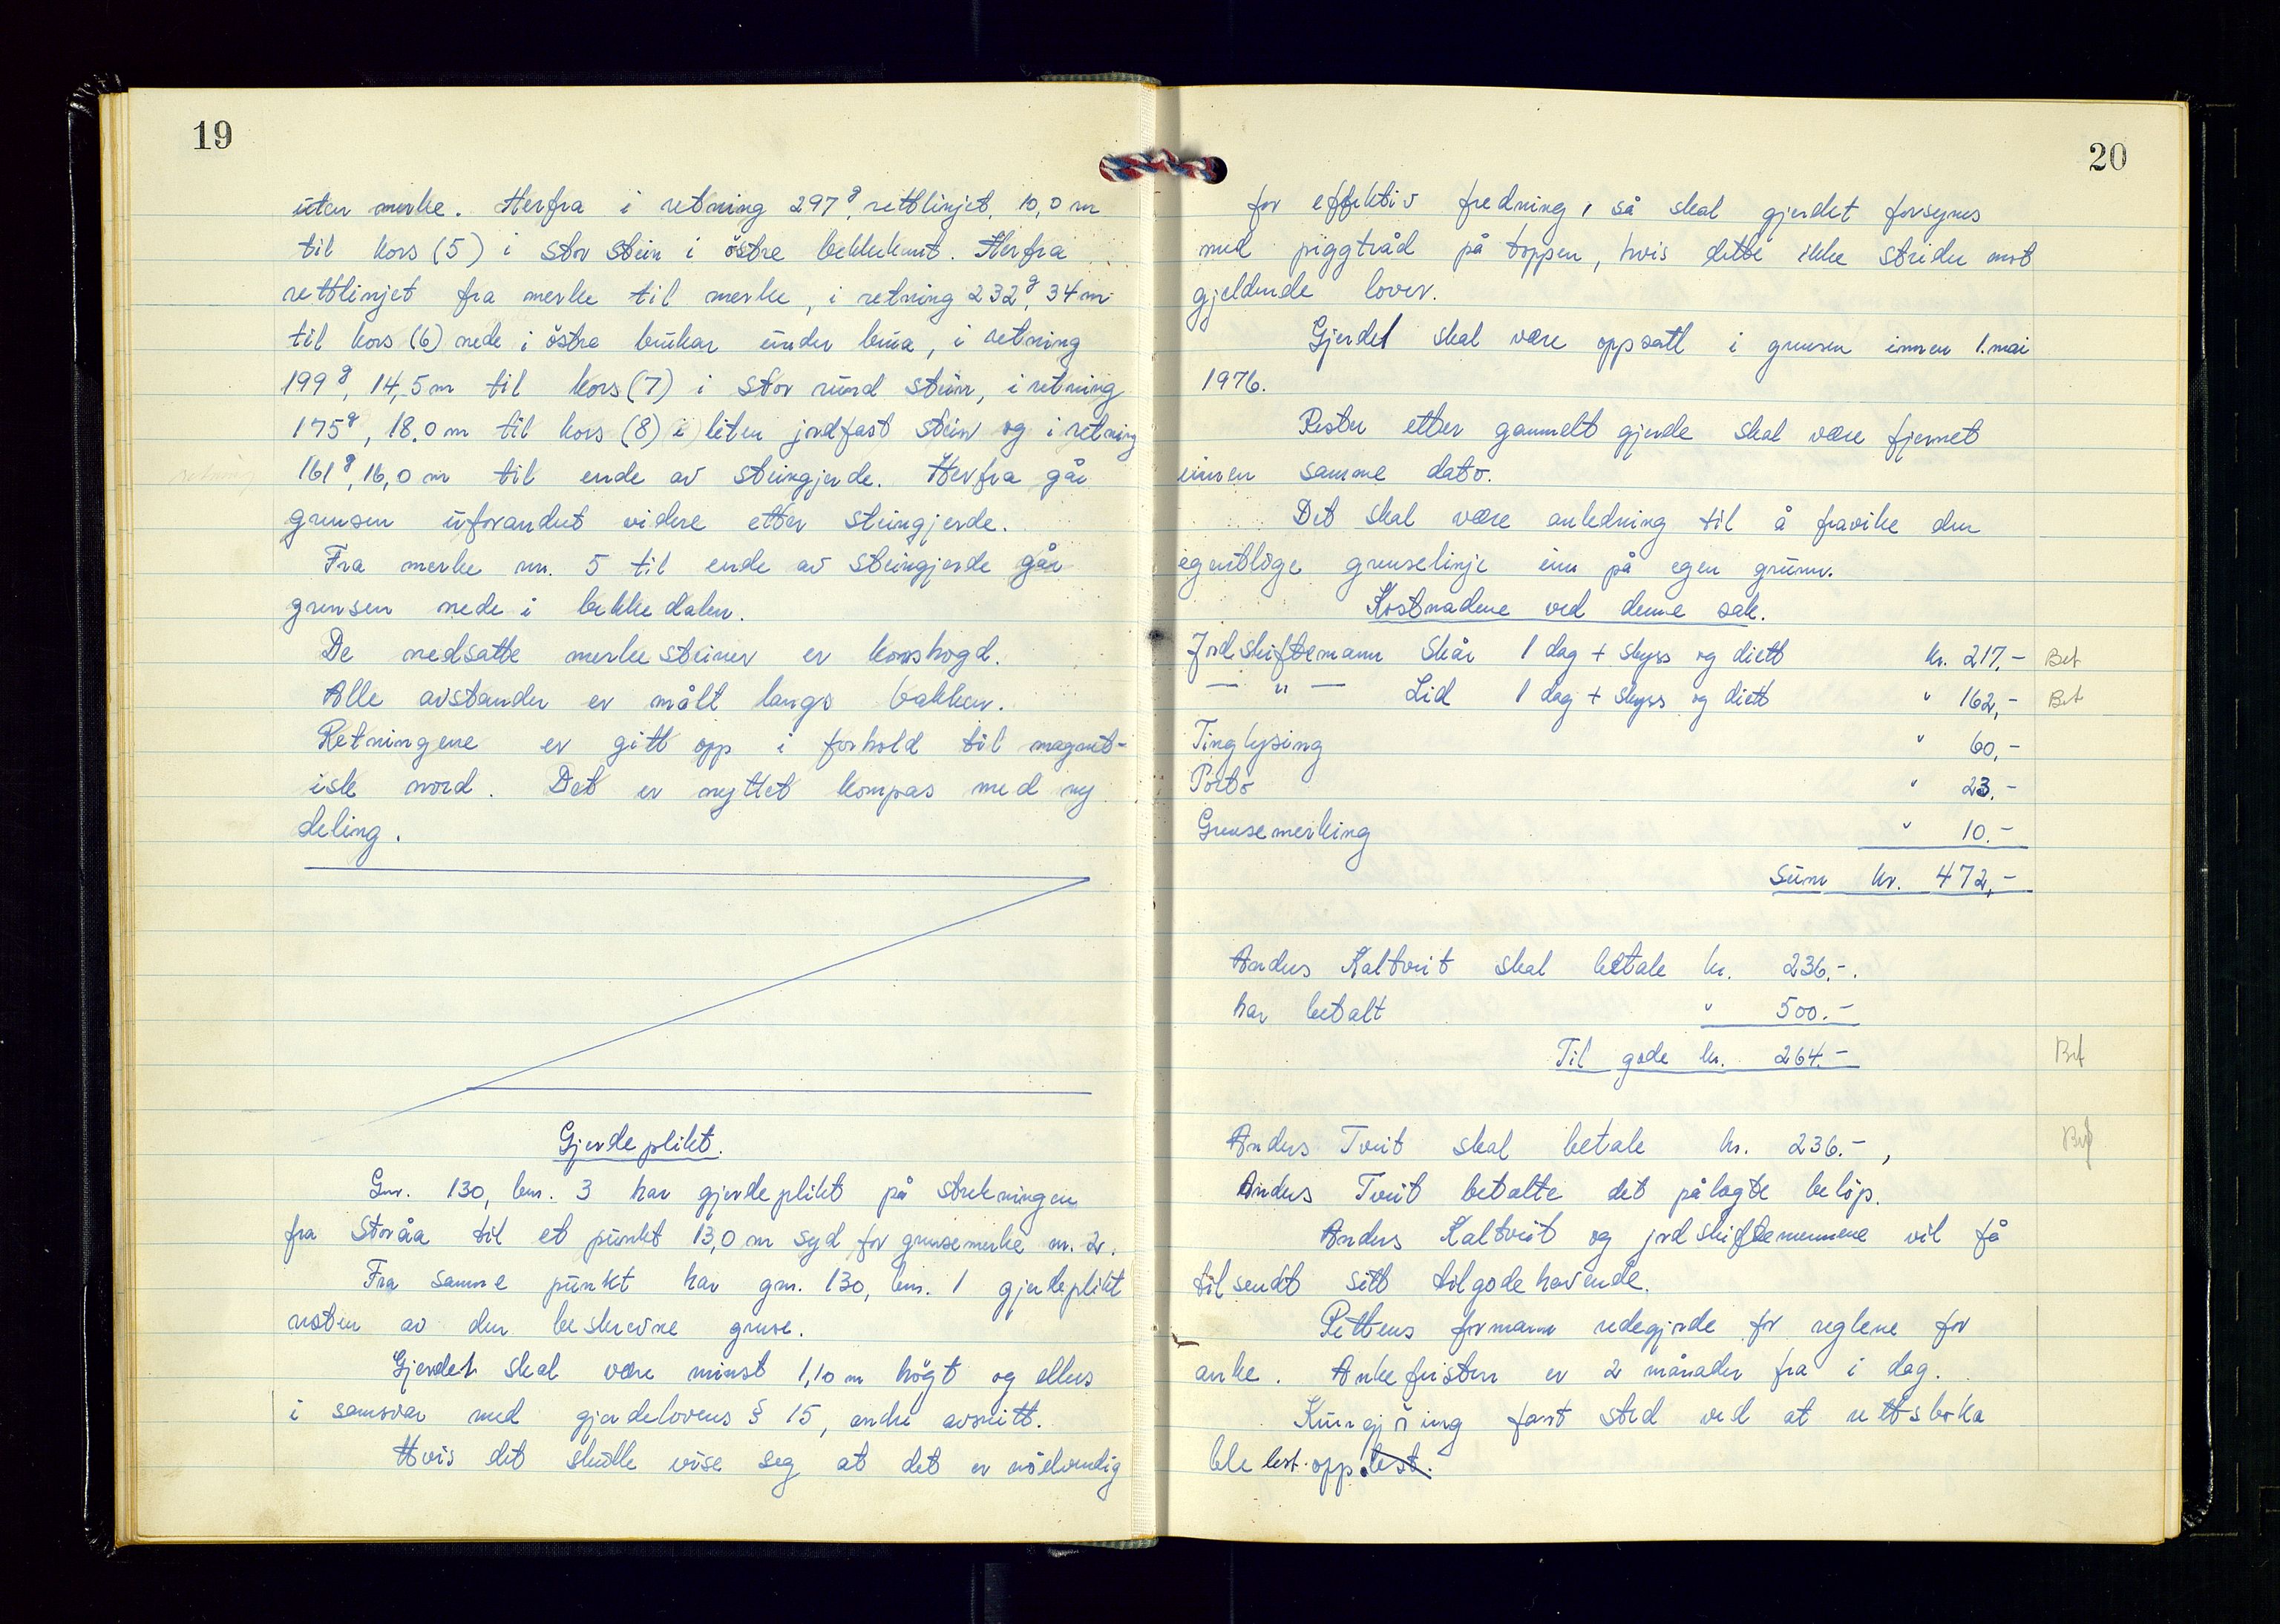 19
uten merke. Herfra i retning 297g, rettlinjet, 10,0 m
til kors (5) i stor stein i östre bekkekant. Herfra
rettlinjet fra merke til merke, i retning 232g, 34 m
til kors (6) nede i östra brukar under brua, i retning
199g, 14,5 m til kors (7) i stor rund stein, i retning
175g, 18,0 m til kors (8) i liten jordfast stein og i retning
161g, 16,0 m til ende av steingjerde. Herfra går
grensen uforandret videre etter steingjerde.
Fra merke nr. 5 til ende av steingjerde går
grensen nede i bekkedalen.
De nedsatte merkesteiner er korshogd.
Alle avstander er målt langs bakken.
Retningene er gitt opp i forhold til magnet-
isk nord. Det er nyttet kompas med ny
deling.
Gjerdeplikt.
Gnr. 130, bnr. 3 har gjerdeplikt på strekningen
fra Storåa til et punkt 13,0 m syd for grensemerke nr. 2.
Fra samme punkt har gnr. 130, bnr. 1 gjerdeplikt
resten av den beskrevne grense.
Gjerdet skal være minst 1,10 m högt og ellers
i samsvar med gjerdelovens § 15, andre avsnitt.
Hvis det skulle vise seg at det er nödvendig
20
for effektiv fredning, så skal gjerdet forsynes
med piggtråd på toppen, hvis dette ikke strider mot
gjeldende lover.
Gjerdet skal være oppsatt i grensen innen 1. mai
1976.
Rester etter gammelt gjerde skal være fjernet
innen samme dato.
Det skal være anledning til å fravike den
egentlige grenselinje inn på egen grunn.
Kostnadene ved denne sak.
Jordskiftemann Skår 1 dag + skyss og diett kr. 217,- Bet
— " — Lid 1 dag + skyss og diett " 162,- Bet
Tinglysing " 60,-
Porto " 23.-
Grensemerking " 10.-
Sum kr. 472,-
Anders Kaltveit skal betale kr. 236.-.
har betalt " 500.-
Til gode kr. 264.- Bet
Anders Tveit skal betale kr. 236.-, Bet
Anders Tveit betalte det pålagte belöp.
Anders Kaltveit og jordskiftemennene vil få
tilsendt sitt tilgodehavende.
Rettens formann redegjorde for reglene for
anke. Ankefristen er 2 månader fra i dag.
Kungjöring fant sted ved at rettsboka
ble lest opp.lest.